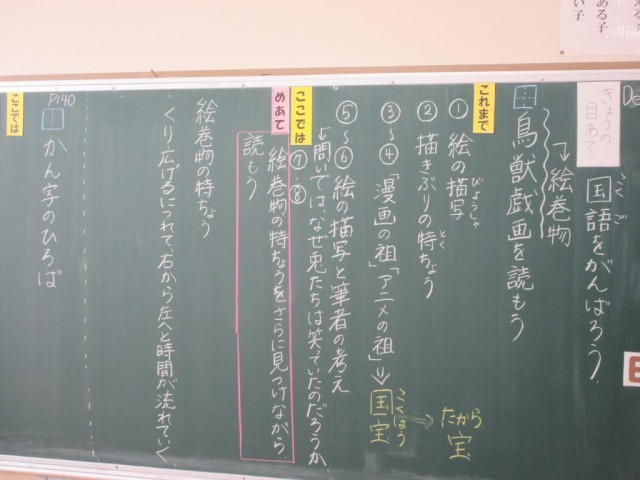 きょうの
目あて
こくご
国語をがんばろう。
↳絵巻物
鳥獣戯画を読もう
これまで
① 絵の描写
びょうしゃ
② 描きぶりの特ちょう
とく
③〜④「漫画の祖」「アニメの祖」⇒国宝
こくほう
→宝
たから
⑤〜⑥ 絵の描写と筆者の考え
↳問いでは、なぜ兎たちは笑っていたのだろうか。
ここでは
⑦ ⑧
めあて
絵巻物の特ちょうをさらに見つけながら、
読もう
絵巻物の特ちょう
くり広げるにつれて、右から左へと時間が流れていく。
P140
かん字のひろば
ここでは
ある子
い子